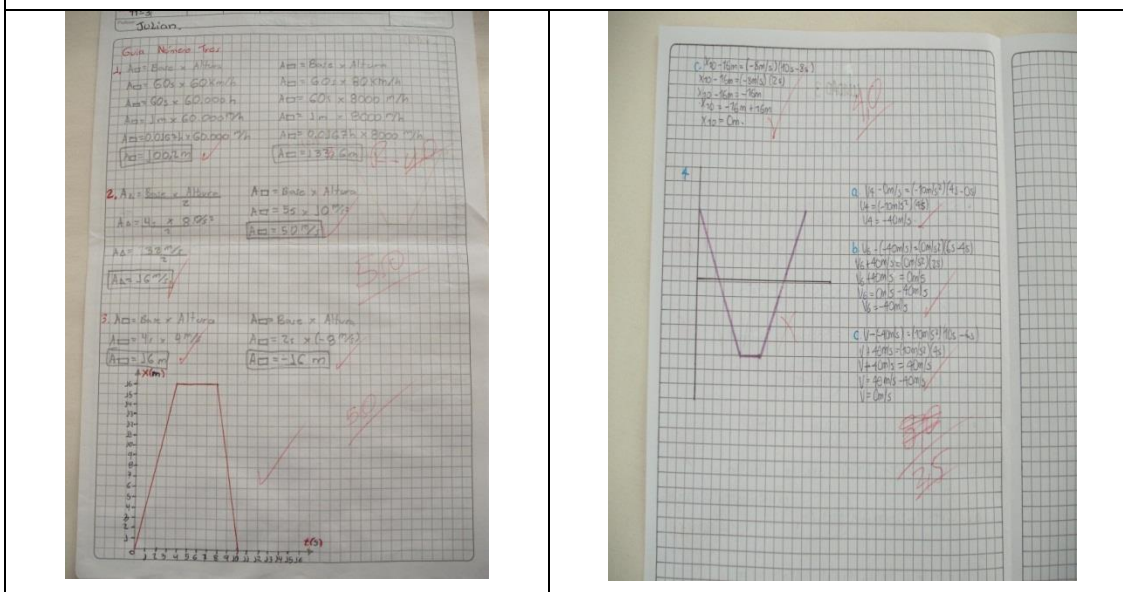 Julian.
Guia Número Tres
1. A□ = Base × Altura
A□ = 60s × 60Km/h
A□ = 60s × 60.000h
A□ = 1m × 60.000 m/h
A□ = 0,0167h × 60.000 m/h
A□ = 1002m
A□ = Base × Altura
A□ = 60s × 80Km/h
A□ = 60s × 8000 m/h
A□ = 1m × 8000 m/h
A□ = 0,0167h × 8000 m/h
2. A△ = Base × Altura
2
A△ =
2
A△ = 32 m/s
2
A△ = 16 m/s
A□ = Base × Altura
A□ = 5s × 10 m/s
A□ = 50 m/s
50
3. A□ = Base × Altura
A□ = 4s × 4 m/s
A□ = 16 m
A□ = Base × Altura
A□ = 2s × (-8 m/s)
A□ = -16 m
50
x(m)
16
15
14
13
12
11
10
9
8
7
6
5
4
3
2
1
0
1 2 3 4 5 6 7 8 9 10 11 12 13 14 15 16
t(s)
c. X10 - 16m = (-8m/s)(10s - 8s)
X10 - 16m = (-8m/s)(2s)
X10 - 16m = -16m
X10 = -16m + 16m
X10 = 0m.
40
4
a V4 - 0m/s = (-10m/s²)(4s - 0s)
V4 = (-10m/s²)(4s)
V4 = -40m/s
b V6 - (-40m/s) = (0m/s²)(6s - 4s)
V6 + 40m/s = (0m/s²)(2s)
V6 + 40m/s = 0m/s
V6 = 0m/s - 40m/s
V6 = -40m/s
c V - (-40m/s) = (10m/s²)(10s - 6s)
V + 40m/s = (10m/s²)(4s)
V + 40m/s = 40m/s
V = 40m/s - 40m/s
V = 0m/s
25